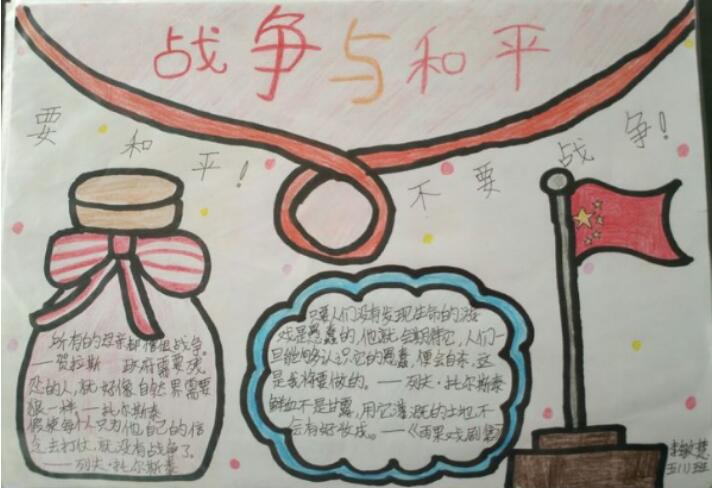 战争与和平
要和平！
不要战争！
所有的母亲都憎恨战争。
——贺拉斯 政府需要残
忍的人，就好像自然界需要
狼一样——托尔斯泰
假使每个人只为他自己的信
念去打仗，就没有战争了。
——列夫·托尔斯泰
只要人们没有发现生命的游
戏是愚蠢的，他就会期待它，人们一
旦能够认识它的愚蠢，便会自杀，这
是我将要做的。——列夫·托尔斯泰
鲜血不是甘露，用它灌溉的土地不
会有好收成。——《雨果戏剧集》
五（1）班